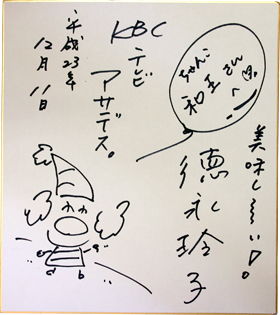 ちゃんこ
和王さん
へ
美味し〜い!
徳永玲子
KBC
テレビ
アサデス。
平成23年
12月11日